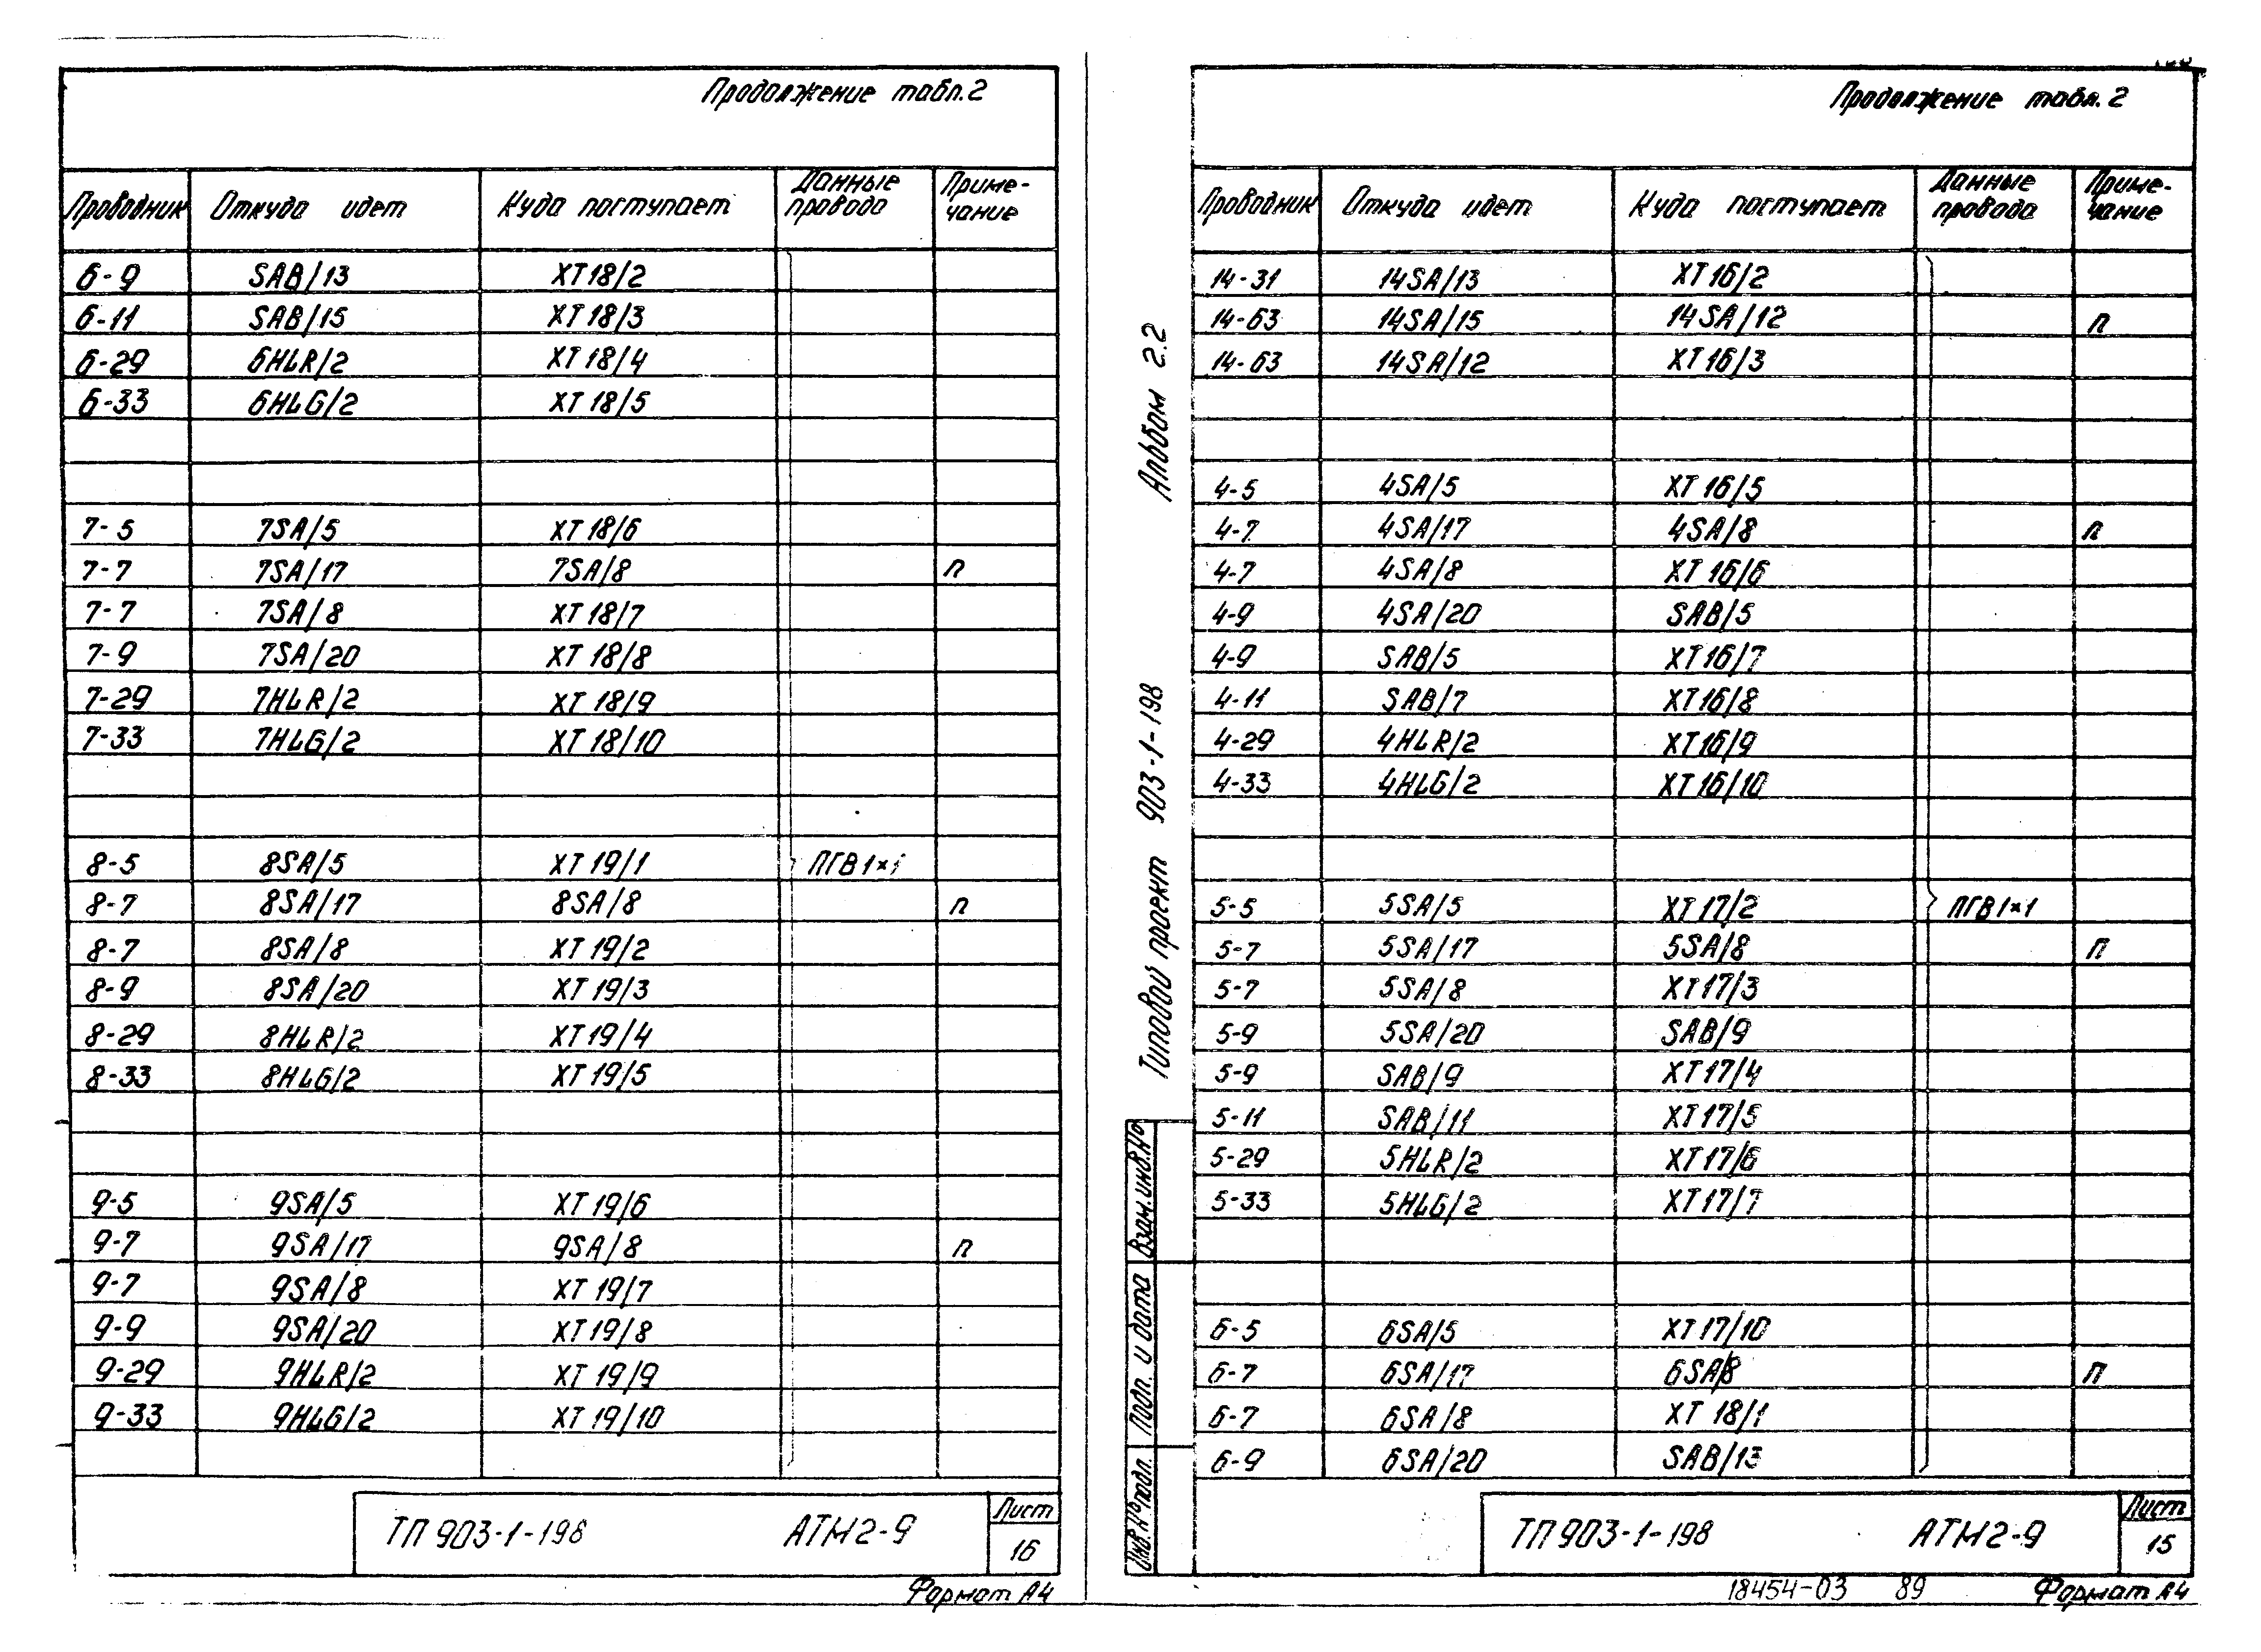 Продолжение табл. 2
Проводник Откуда идет Куда поступает Данные провода Приме-чание
6-9 SAB/13 XT18/2
6-11 SAB/15 XT18/3
6-29 6HLR/2 XT18/4
6-33 6HLG/2 XT18/5
7-5 7SA/5 XT18/6
7-7 7SA/17 7SA/8 П
7-7 7SA/8 XT18/7
7-9 7SA/20 XT18/8
7-29 7HLR/2 XT18/9
7-33 7HLG/2 XT18/10
8-5 8SA/5 XT19/1 ПГВ1×1
8-7 8SA/17 8SA/8 П
8-7 8SA/8 XT19/2
8-9 8SA/20 XT19/3
8-29 8HLR/2 XT19/4
8-33 8HLG/2 XT19/5
9-5 9SA/5 XT19/6
9-7 9SA/17 9SA/8 П
9-7 9SA/8 XT19/7
9-9 9SA/20 XT19/8
9-29 9HLR/2 XT19/9
9-33 9HLG/2 XT19/10
ТП 903-1-198 АТМ2-9 Лист 16
Формат А4
Продолжение табл. 2
Проводник Откуда идет Куда поступает Данные провода Приме-чание
14-31 14SA/13 XT16/2
14-63 14SA/15 14SA/12 П
14-63 14SA/12 XT16/3
4-5 4SA/5 XT16/5
4-7 4SA/17 4SA/8 П
4-7 4SA/8 XT16/6
4-9 4SA/20 SAB/5
4-9 SAB/5 XT16/7
4-11 SAB/7 XT16/8
4-29 4HLR/2 XT16/9
4-33 4HLG/2 XT16/10
5-5 5SA/5 XT17/2 ПГВ1×1
5-7 5SA/17 5SA/8 П
5-7 5SA/8 XT17/3
5-9 5SA/20 SAB/9
5-9 SAB/9 XT17/4
5-11 SAB/11 XT17/5
5-29 5HLR/2 XT17/6
5-33 5HLG/2 XT17/7
6-5 6SA/5 XT17/10
6-7 6SA/17 6SA/8 П
6-7 6SA/8 XT18/1
6-9 6SA/20 SAB/13
ТП 903-1-198 АТМ2-9 Лист 15
18454-03 89 Формат А4
Альбом 2.2
Типовой проект 903-1-198
Взам.инв.№
Подп. и дата
Инв.№ подл.